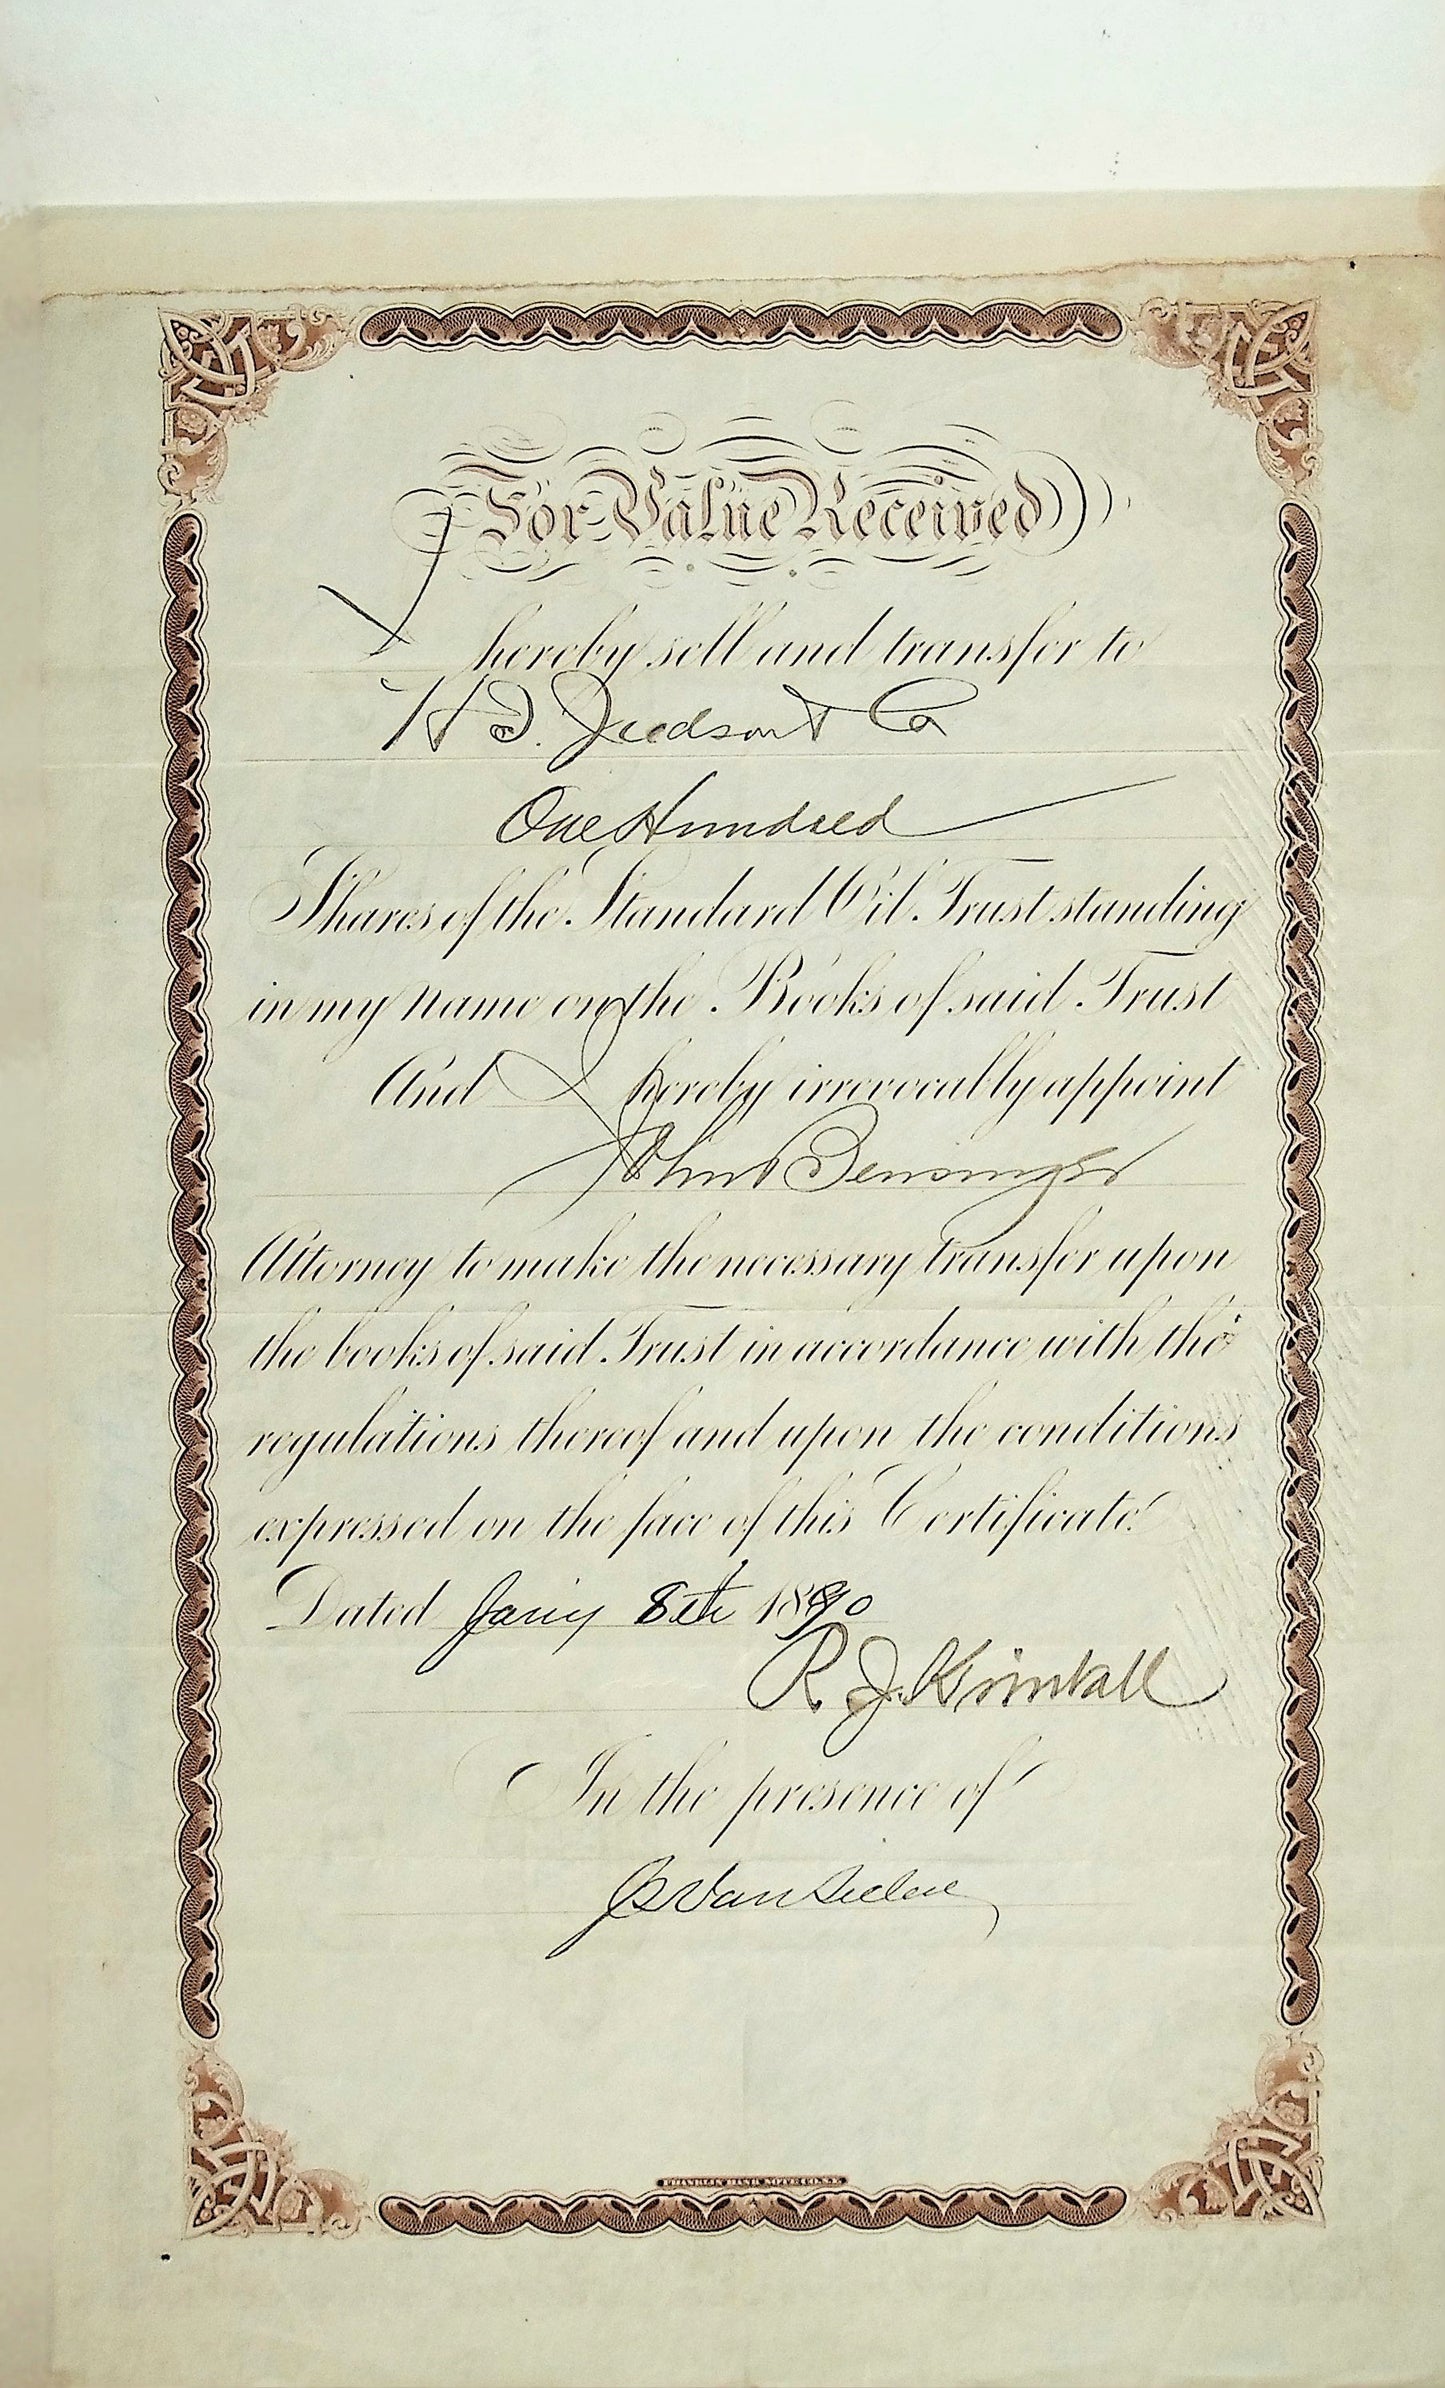 For Value Received
I hereby sell and transfer to
H I. Judson & Co
One Hundred
Shares of the Standard Oil Trust standing
in my name on the Books of said Trust
And I hereby irrevocably appoint
John Bensinger
Attorney to make the necessary transfer upon
the books of said Trust in accordance with the
regulations thereof and upon the conditions
expressed on the face of this Certificate.
Dated Jany 8th 1890
R. J. Kimball
In the presence of
FRANKLIN BANK NOTE CO. N.Y.